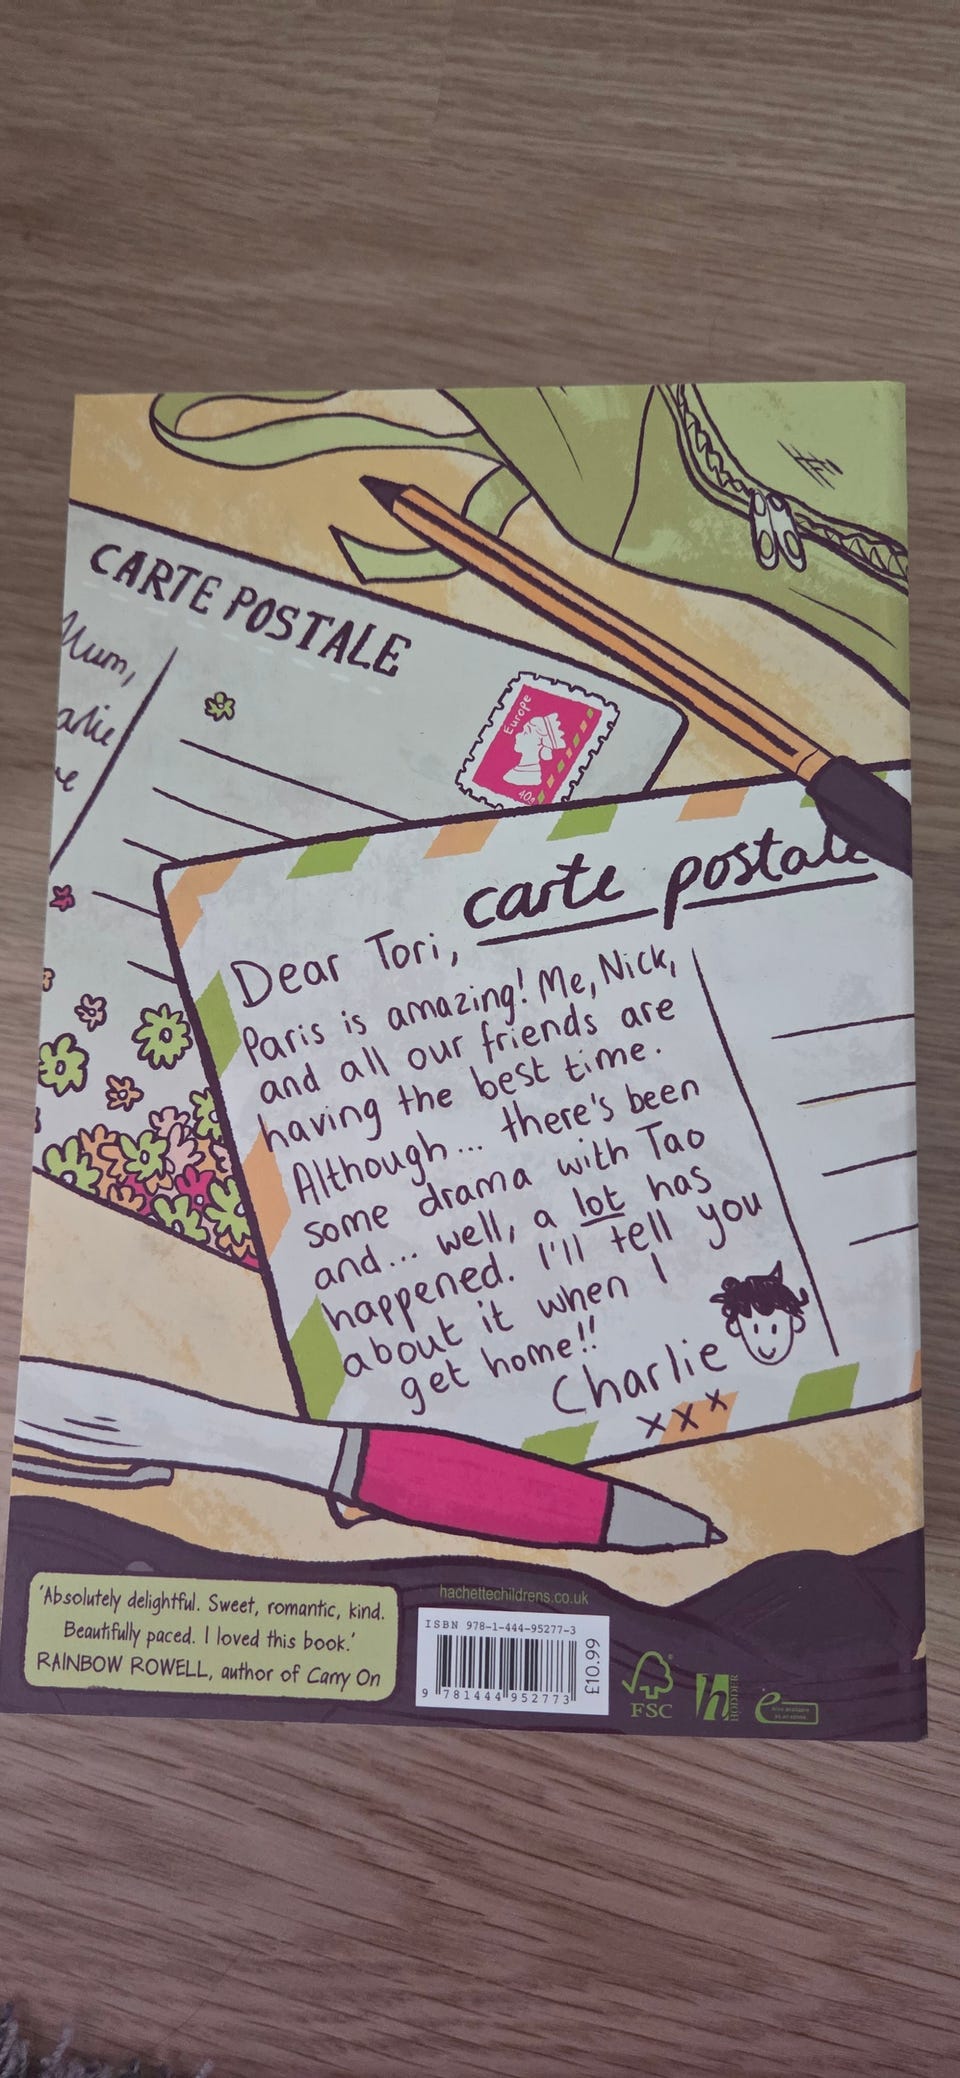 CARTE POSTALE
Mum,
Europe
carte postale
Dear Tori,
Paris is amazing! Me, Nick,
and all our friends are
having the best time.
Although... there's been
some drama with Tao
and... well, a lot has
happened. I'll tell you
about it when I
get home!!
Charlie
xxx
'Absolutely delightful. Sweet, romantic, kind.
Beautifully paced. I loved this book.'
RAINBOW ROWELL, author of Carry On
hachettechildrens.co.uk
ISBN 978-1-444-95277-3
9 781444 952773
£10.99
FSC
h
HODDER
e
Also available
as an ebook